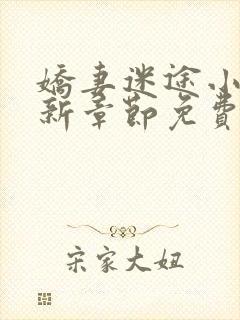 嬌妻迷途小
新章節免費
宋家大姐